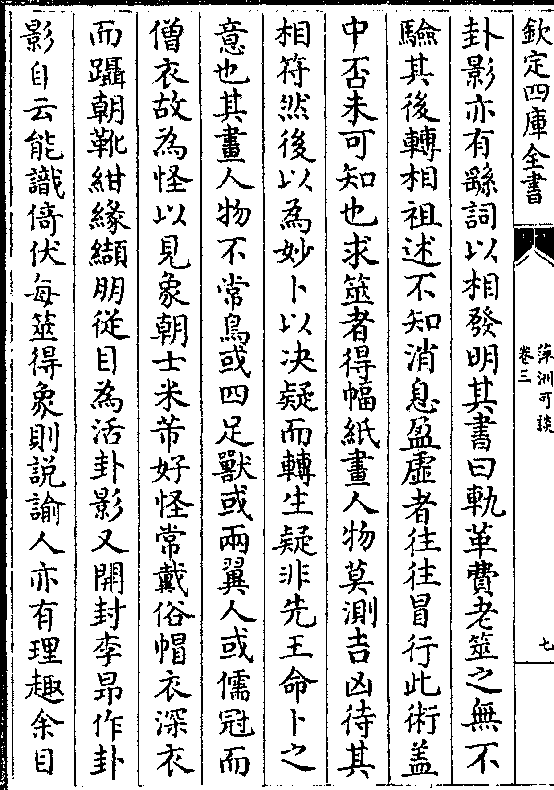 欽定四庫全書
萍洲可談
卷三
七
卦影亦有繇詞以相發明其書曰軌革費老筮之無不
驗其後轉相祖述不知消息盈虛者往往冒行此術盖
中否未可知也求筮者得幅紙畫人物莫測吉凶待其
相符然後以為妙卜以決疑而轉生疑非先王命卜之
意也其畫人物不常鳥或四足獸或兩翼人或儒冠而
僧衣故為怪以見象朝士米芾好怪常戴俗帽衣深衣
而躡朝靴紺緣纈朋從目為活卦影又開封李昂作卦
影自云能識倚伏每筮得象則説諭人亦有理趣余目